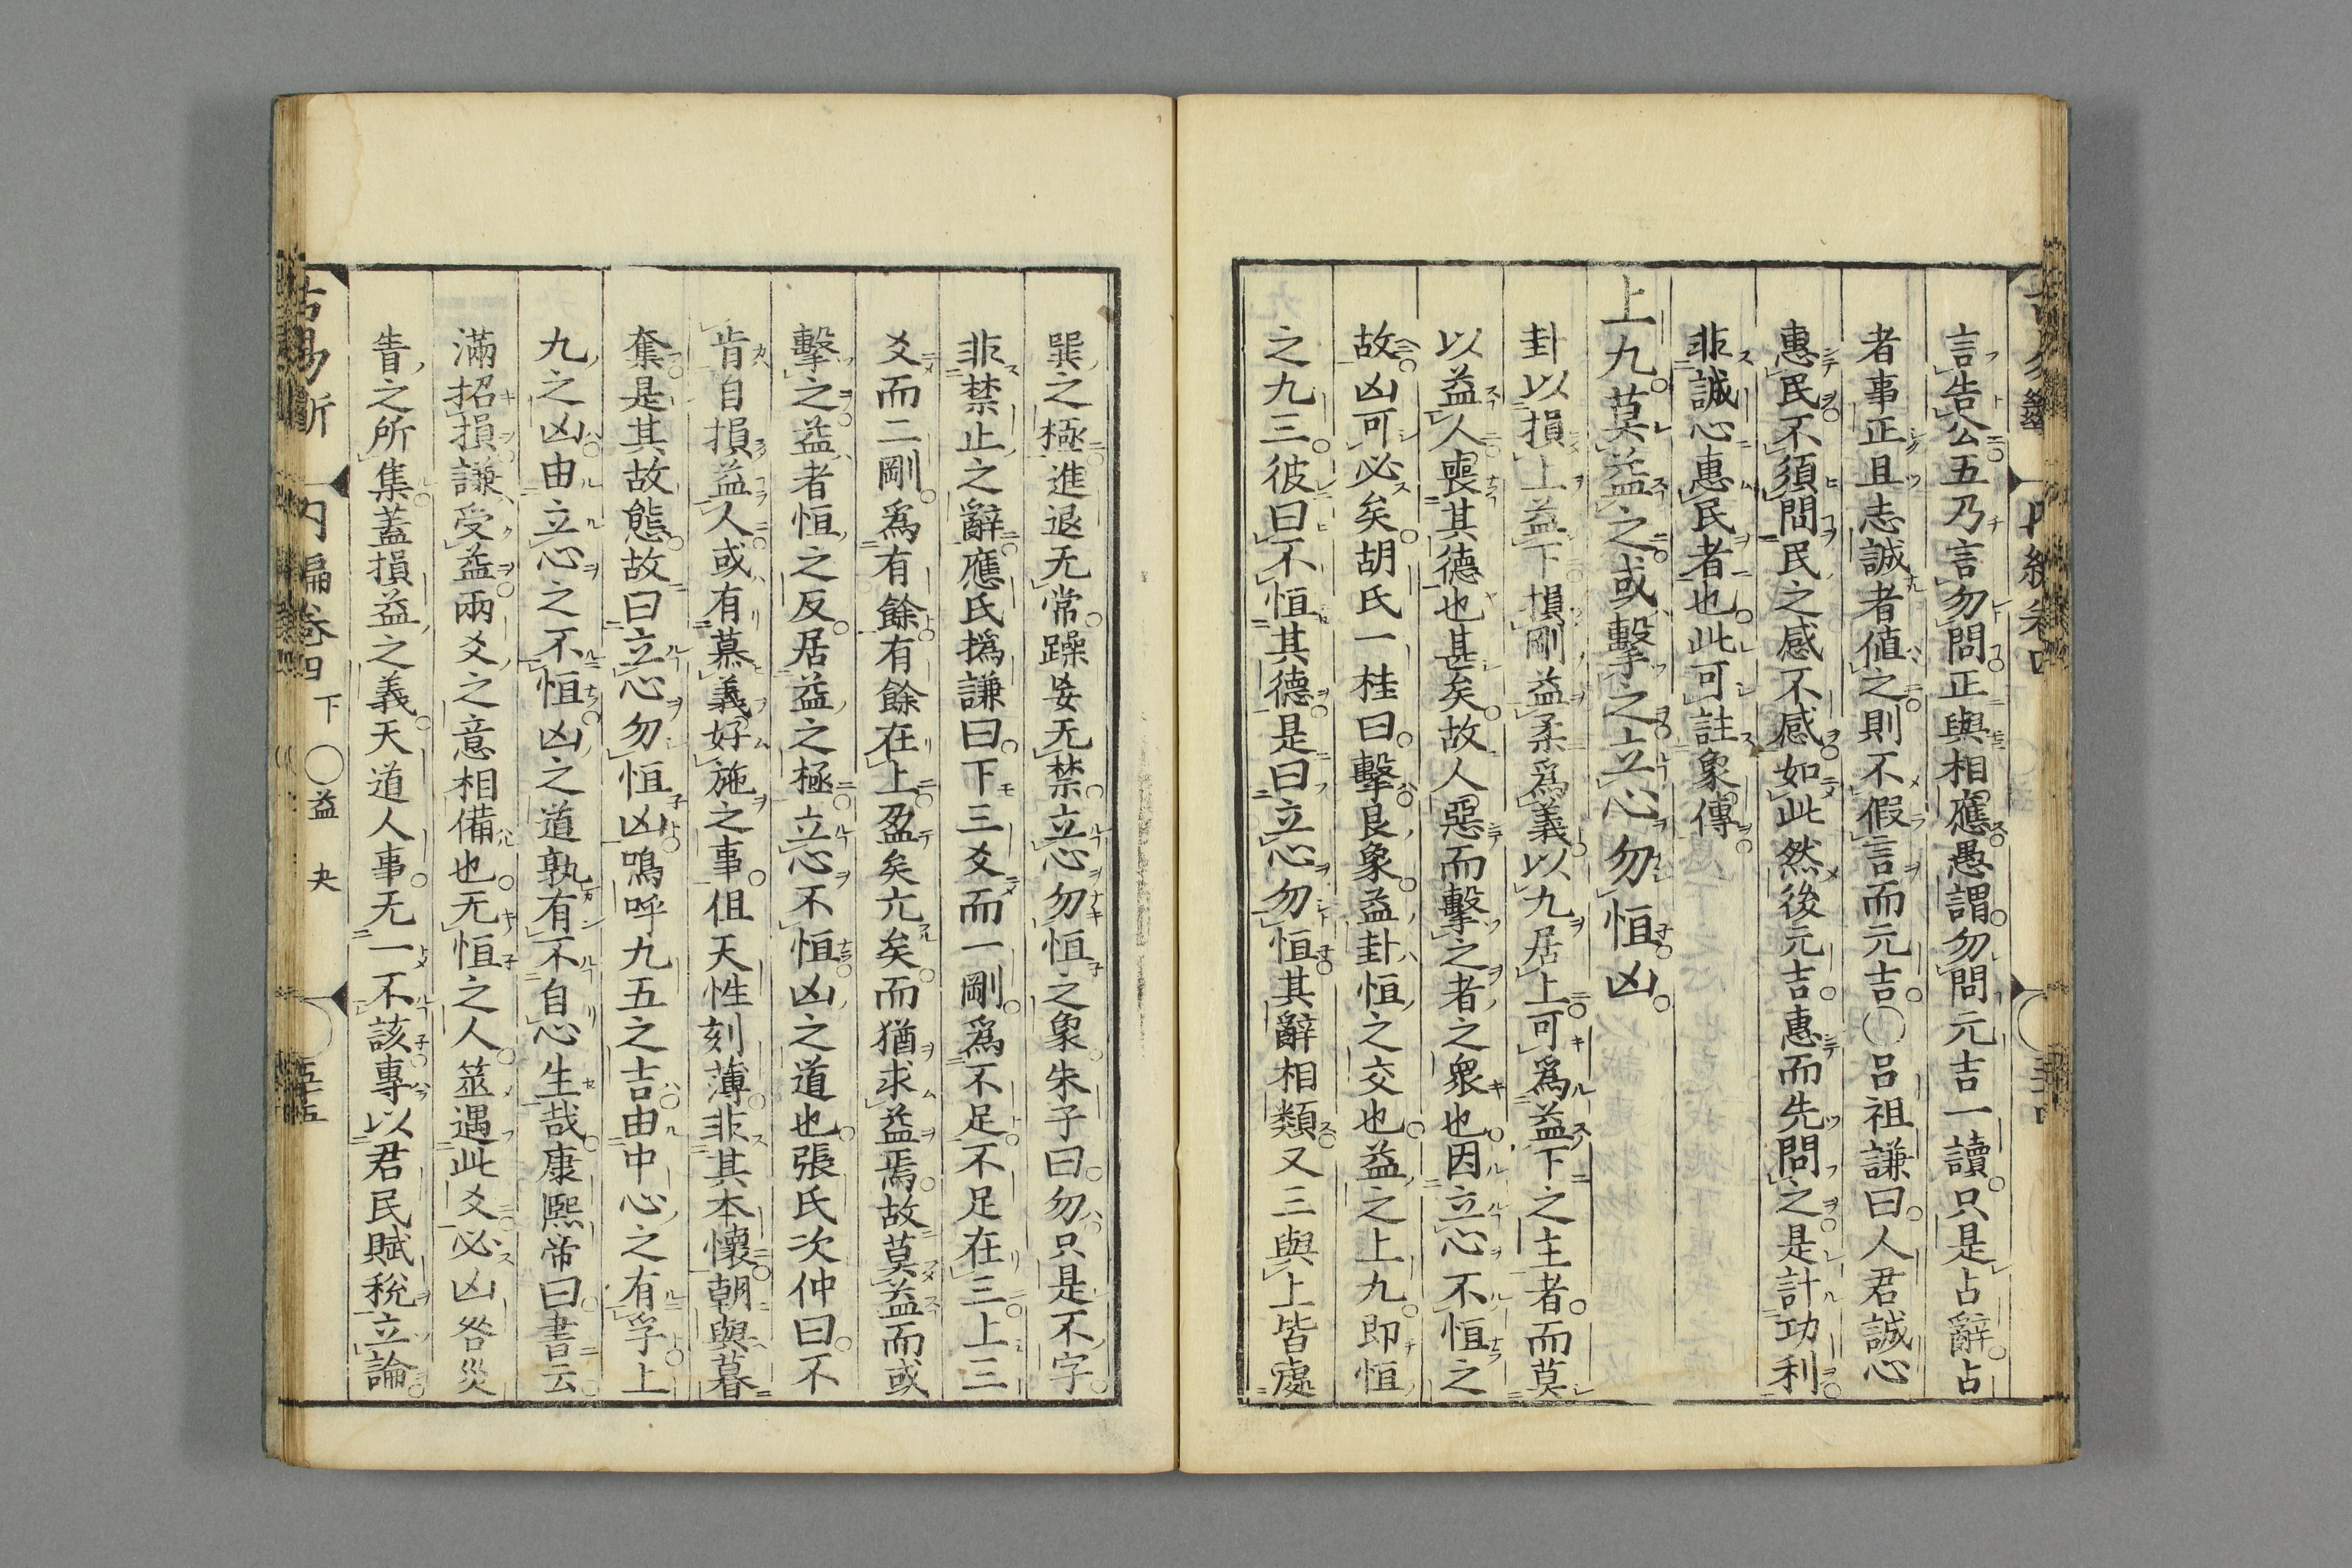 言告公五乃言勿問正與相應愚謂勿問元吉一讀只是占辭占
者事正且志誠者値之則不假言而元吉○呂祖謙曰人君誠心
惠民不須問民之感不感如此然後元吉惠而先問之是計功利
非誠心惠民者也此可註象傳
上九莫益之或擊之立心勿恒凶
卦以損上益下損剛益柔爲義以九居上可爲益下之主者而莫
以益人喪其德也甚矣故人惡而擊之者之衆也因立心不恒之
故凶可必矣胡氏一桂曰擊艮象益卦恒之交也益之上九即恒
之九三彼曰不恒其德是曰立心勿恒其辭相類又三與上皆處
巽之極進退无常躁妄无禁立心勿恒之象朱子曰勿只是不字
非禁止之辭應氏撝謙曰下三爻而一剛爲不足不足在三上三
爻而二剛爲有餘有餘在上盈矣亢矣而猶求益焉故莫益而或
擊之益者恒之反居益之極立心不恒凶之道也張氏次仲曰不
肯自損益人或有慕義好施之事但天性刻薄非其本懷朝與暮
奪是其故態故曰立心勿恒凶鳴呼九五之吉由中心之有孚上
九之凶由立心之不恒凶之道孰有不自心生哉康熙帝曰書云
滿招損謙受益兩爻之意相備也无恒之人筮遇此爻必凶咎災
眚之所集蓋損益之義天道人事无一不該專以君民賦稅立論
古易斷 内編卷四 下 ○益 夬 五十五